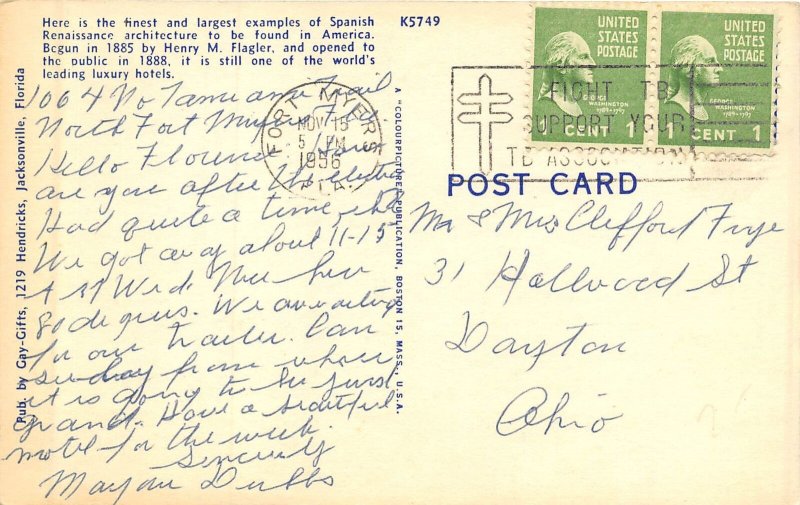 Here is the finest and largest examples of Spanish
Renaissance architecture to be found in America.
Begun in 1885 by Henry M. Flagler, and opened to
the public in 1888, it is still one of the world's
leading luxury hotels.
K5749
UNITED STATES POSTAGE
GEORGE WASHINGTON
1789-1797
1 CENT 1
UNITED STATES POSTAGE
GEORGE WASHINGTON
1789-1797
1 CENT 1
FORT MYERS
NOV 15
5 PM
1956
FLA.
FIGHT TB
SUPPORT YOUR
TB ASSOCIATION
POST CARD
1064 No Tamiami Trail
North Fort Myers
Hello Florence
are you after the election
Had quite a time
We got away about 11-15
A st Wed. Nice here
80 degrees. We are waiting
for our trailer. Can
see bay from where
it is going to be just
grand. Have a beautiful
motel for the week.
Sincerely
Marjorie Dubbs
Mr & Mrs Clifford Frye
31 Hallwood St
Dayton
Ohio
Pub. by Gay-Gifts, 1219 Hendricks, Jacksonville, Florida
A "COLOURPICTURE" PUBLICATION, BOSTON 15, MASS., U.S.A.